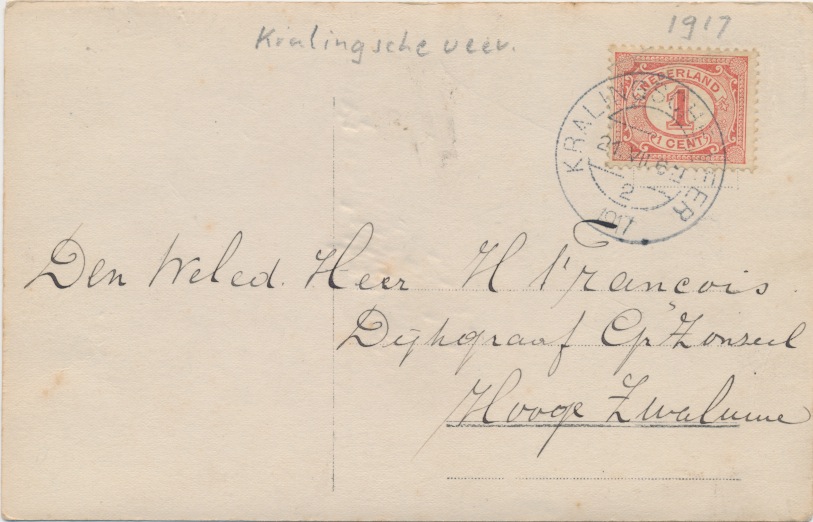 Kralingsche veer.
1917
NEDERLAND
1
1 CENT
KRALINGSCHEVEER
21 VII 6-7
2
1917
Den Weled. Heer H Francois
Dijkgraaf Op Zonzeel
Hooge Zwaluwe